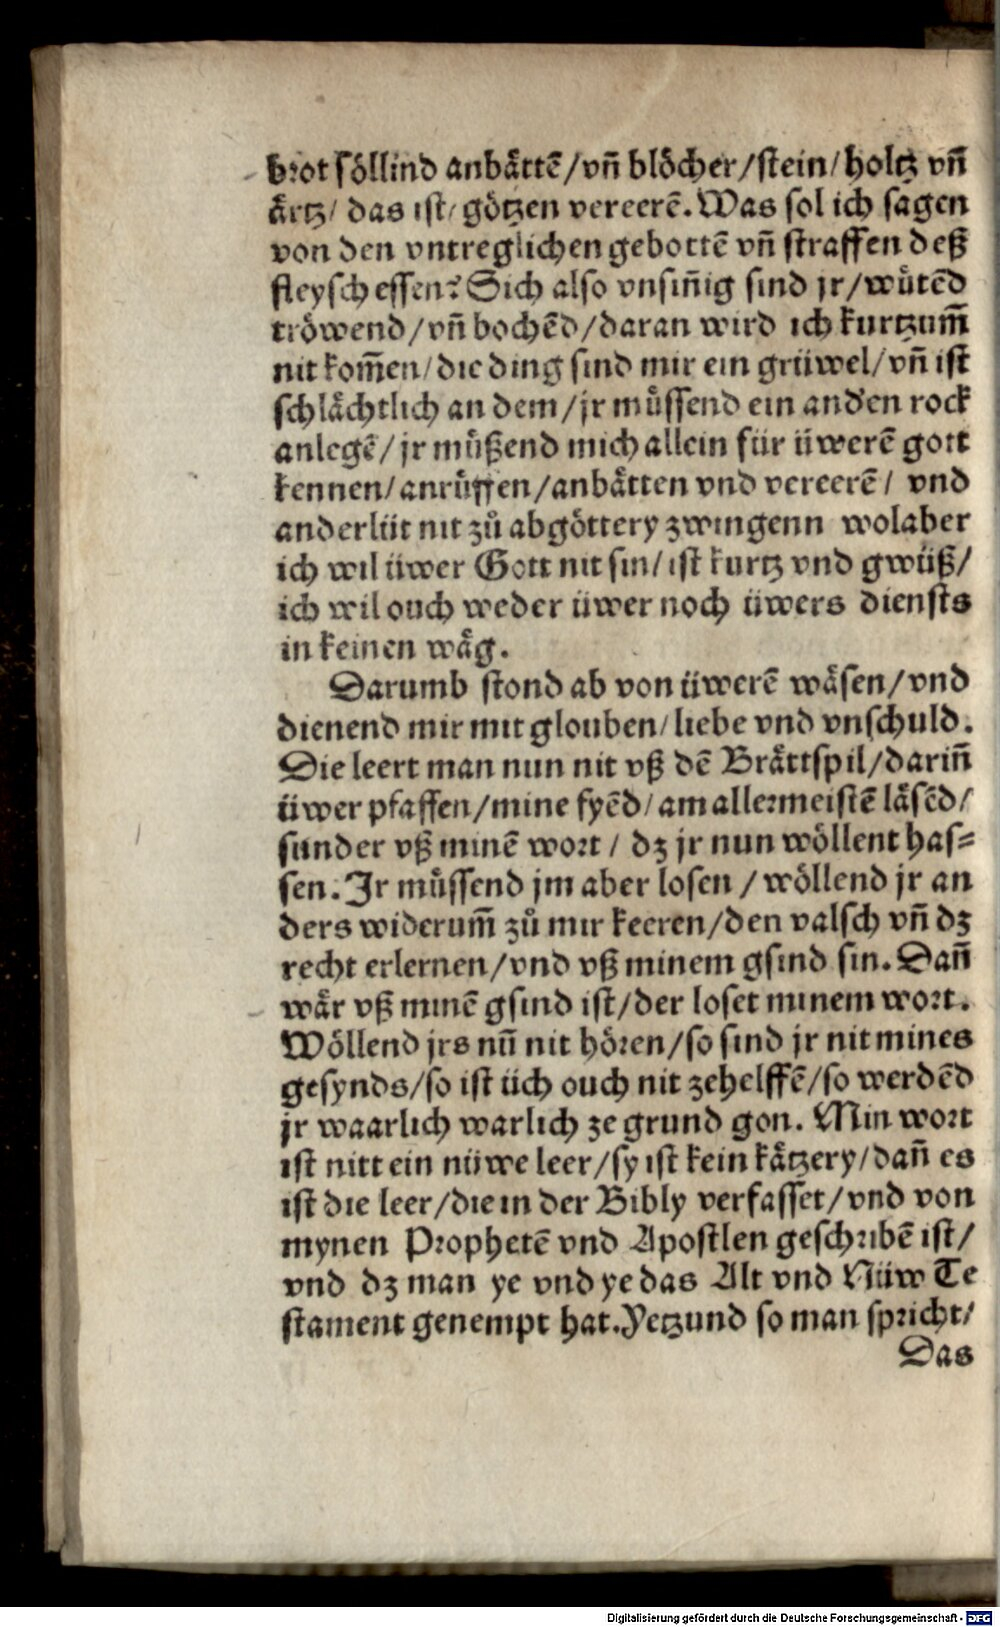 brot söllind anbåttē/vñ blöcher/stein/holtz vñ
ärtz/ das ist/ götzen vereerē. Was sol ich sagen
von den vntreglichen gebottē vñ straffen deß
fleysch essen? Sich also vnsiñig sind jr/wůtēd
tröwend/vñ bochēd/daran wird ich kurtzum̄
nit kom̄en/die ding sind mir ein grüwel/vñ ist
schlächtlich an dem/jr müssend ein and'en rock
anlegē/jr müßend mich allein für üwerē gott
kennen/anrüffen/anbätten vnd vereerē/ vnd
ander lüt nit zů abgöttery zwingenn wolaber
ich wil üwer Gott nit sin/ist kurtz vnd gwüß/
ich wil ouch weder üwer noch üwers diensts
in keinen wäg.
Darumb stond ab von üwerē wäsen/vnd
dienend mir mit glouben/liebe vnd vnschuld.
Die leert man nun nit vß dē Brättspil/dariñ
üwer pfaffen/mine fyēd/am allermeistē läsēd/
sunder vß minē wort/ dz jr nun wöllent has=
sen. Jr müssend jm aber losen/wöllend jr an
ders widerum̄ zů mir keeren/den valsch vñ dz
recht erlernen/vnd vß minem gsind sin. Dañ
wär vß minē gsind ist/der loset minem wort.
Wöllend jrs nū nit hören/so sind jr nit mines
gesynds/so ist üch ouch nit zehelffē/so werdēd
jr waarlich warlich ze grund gon. Min wort
ist nitt ein nüwe leer/sy ist kein kätzery/dañ es
ist die leer/die in der Bibly verfasset/vnd von
mynen Prophetē vnd Apostlen geschribē ist/
vnd dz man ye vnd ye das Alt vnd Nüw Te
stament genempt hat. Yetzund so man spricht/
Das
Digitalisierung gefördert durch die Deutsche Forschungsgemeinschaft - DFG